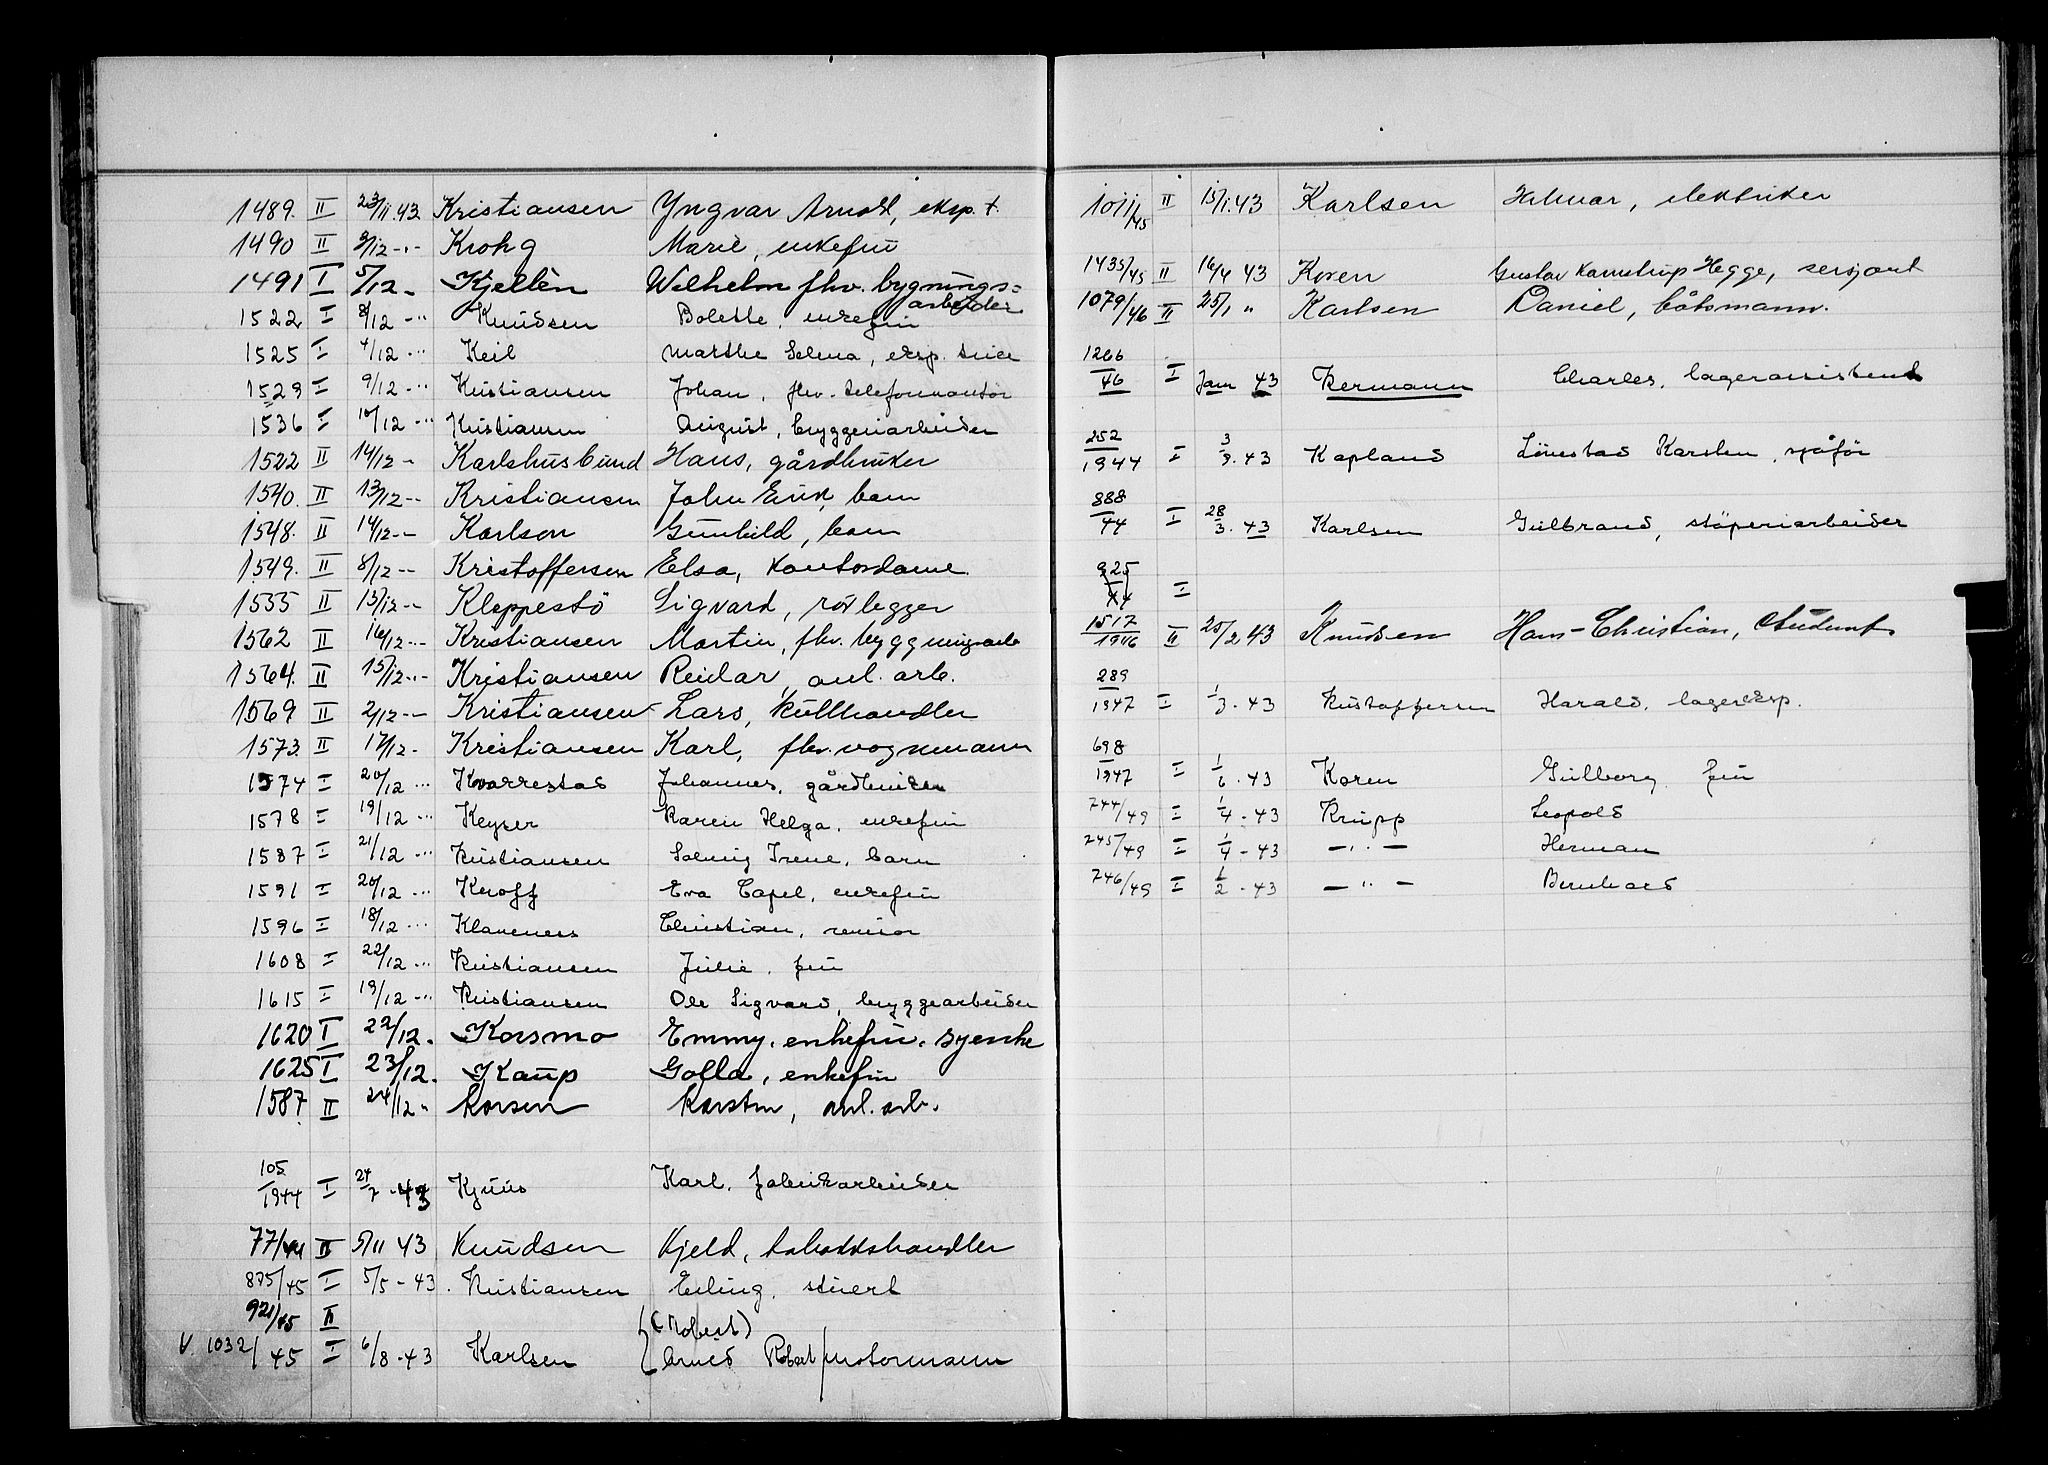 1489. II 23/11.43. Kristiansen Yngvar Arnold, eksp.
1490 II 3/12 -"- Krohg Marie, enkefru
1491 I 5/12 - Kjellèn Wilhelm fhv. bygnings=
arbeider
1522 I 8/12 -" Knudsen Bolette, enkefru
1525 I 4/12 -" Keil Marthe Selma, eksp.
1529 I 9/12 -" Kristiansen Johan, fhv. telefonmontør
1536 I 10/12 -" Kristiansen August, bryggeriarbeider
1522 II 14/12 - Karlshusbund Hans, gårdbruker
1540. II 13/12 -- Kristiansen John Erik, barn
1548. II 14/12 -- Karlson Gunhild, barn
1549. II 8/12 -- Kristoffersen Elsa, kontordame.
1555 II 13/12 -- Kleppestö Sigvard, rörlegger
1562 II 16/12 -- Kristiansen Martin, fhv. byggningsarb
1564. II 15/12 -- Kristiansen Reidar, anl. arb.
1569 II 2/12 -- Kristiansen Lars, kullhandler
1573. II 17/12 - Kristiansen Karl, fhv. vognmann
1574 I 20/12 -" Kvarrestad Johannes, gårdbruker
1578 I 19/12 -" Keyser Karen Helga, enkefru
1587 I 21/12 -" Kristiansen Solveig Irene, barn
1591 I 20/12 -" Knoff Eva Capel, enkefru
1596 I 18/12 -" Klaveness Christian,
1608 I 22/12 -" Kristiansen Julie, fru
1615 I 19/12 -" Kristiansen Ole Sigvard, bryggearbeider
1620 I 22/12. Korsmo Emmy, enkefru, syerske
1625 I 23/12. Kaup Golla, enkefru
1587 II 24/12 - Korsen Karsten, anl. arb.
105/1944 I 24/7 - 43 Kjuus Karl, fabrikarbeider
77/44 II 5/11 43 Knudsen Kjeld, tobakkshandler
875/45 I 5/5 - 43. Kristiansen Erling, stuert
921/45 II (Robert)
V. 1032/45 I 6/8 - 43 Karlsen Arvid Robert motormann
1011/45 II 15/1.43 Karlsen Hilmar, elektriker
1435/45 II 16/4 43 Koren Gustav Kamstrup Hegge, sersjant
1079/46 II 25/1 " Karlsen Daniel, båtsmann.
1266/46 I Jan 43 Kermann Charles, lagerassistent
252/1944 I 3/9. 43 Kapland Lönestad Karsten, sjåför
888/44 I 28/3. 43 Karlsen Gulbrand, stöperiarbeider
925/44 I
1517/1946 II 25/2 43 Knudsen Hans-Christian, student
289/1947 I 1/3. 43 Kristoffersen Harald, lagereksp.
698/1947 I 1/6. 43 Koren Gulborg, fru
744/49 I 1/4 - 43 Krupp Leopold
745/49 I 1/4 - 43 — " — Herman
746/49 I 1/2 - 43 — " — Bernhard